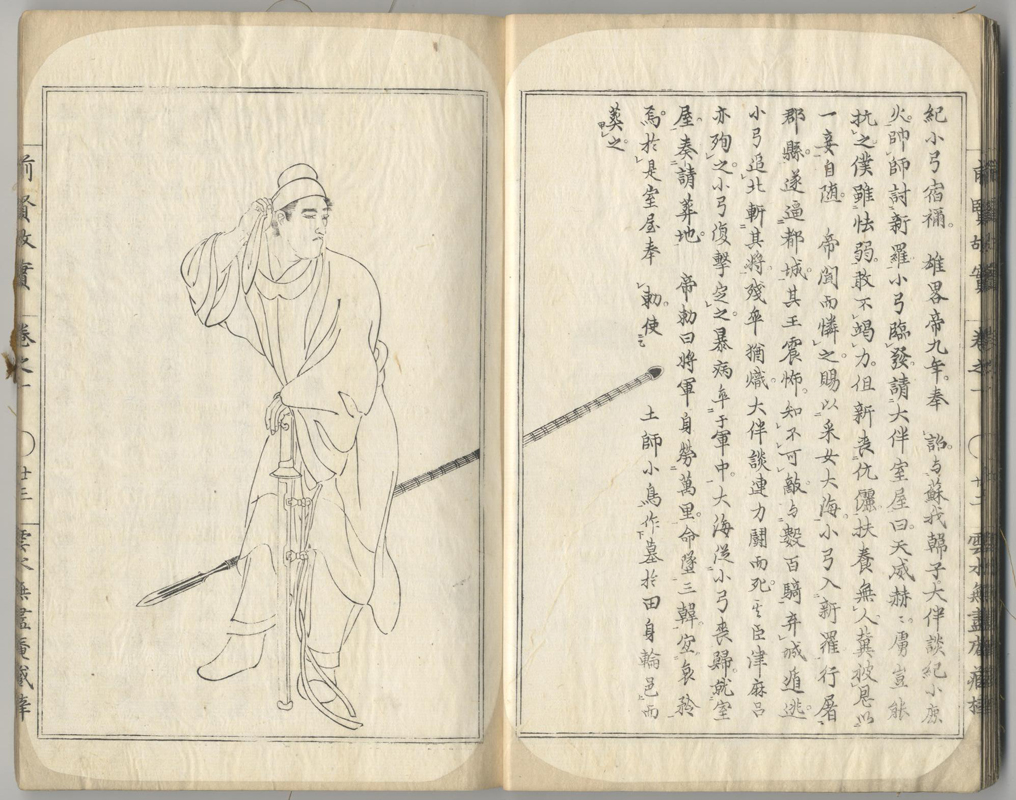 紀小弓宿禰。雄畧帝九年。奉　詔与蘇我韓子大伴談紀小鹿
火帥師討新羅小弓臨發請大伴室屋曰天威赫〻虜豈能
抗之僕雖怯弱。敢不竭力。但新喪伉儷扶養無人冀被恩以
一妾自随　帝聞而憐之賜以采女大海。小弓入新羅行屠
郡縣遂逼都城。其王震怖。知不可敵与數百騎弃城遁逃。
小弓追北斬其将残卒猶熾。大伴談連力鬪而死。其臣津麻呂
亦殉之小弓復擊定之暴病卒于軍中。大海従小弓喪歸就室
屋奏請葬地。　帝勅曰将軍身勞萬里。命墜三韓。宜哀矜
焉於是室屋奉　勅。使　土師小鳥作墓於田身輪邑而
葬之
前賢故實　卷之一　廿二　雲水無盡庵藏梓
前賢故實　卷之一　廿三　雲水無盡庵藏梓